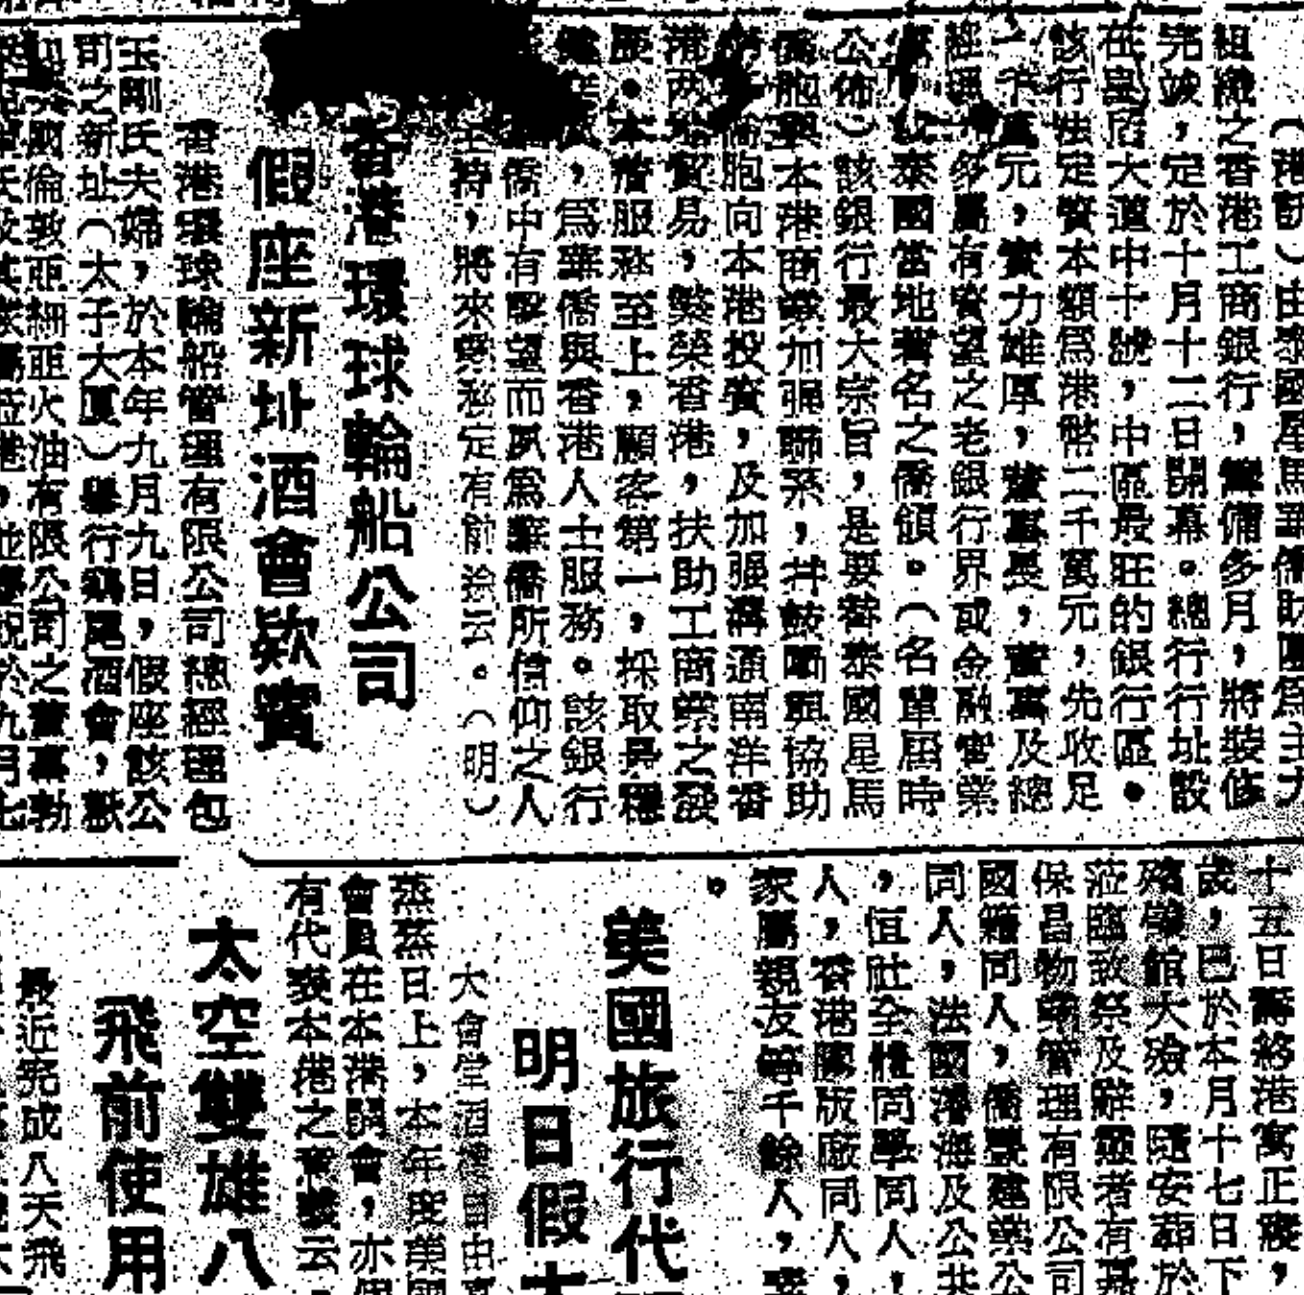 （港訊）由泰國星馬華僑財團爲主力
組織之香港工商銀行，籌備多月，將裝修
完竣，定於十月十二日開幕。總行行址設
在皇后大道中十號，中區最旺的銀行區。
該行法定資本額爲港幣二千萬元，先收足
一千萬元，實力雄厚，董事長，董事及總
經理 多屬有資望之老銀行界或金融實業
泰國當地著名之僑領。（名單屆時
公佈）該銀行最大宗旨，是要替泰國星馬
僑胞與本港商業加強聯系，并鼓勵與協助
僑胞向本港投資，及加强溝通南洋香
港两地貿易，繁榮香港，扶助工商業之發
展。本着服務至上，顧客第一，採取最穩
，爲華僑與香港人士服務。該銀行
僑中有聲望而夙爲華僑所信仰之人
主持，將來業務定有前途云。（明）
香港環球輪船公司
假座新址酒會欵賓
香港環球輪船管理有限公司總經理包
玉剛氏夫婦，於本年九月九日，假座該公
司之新址（太子大厦）舉行鷄尾酒會，歡
國倫敦亞細亞火油有限公司之董事勃
港，並慶祝於九月七
十五日壽終港寓正寢，
歲，已於本月十七日下
殯儀館大殮，隨安葬於
蒞臨致祭及辭靈者有基
保昌物業管理有限公司
國籍同人，僑豐建業公
同人，法國濬海及公共
，恒社全體同學同人，
人，香港膠版廠同人，
家屬親友等千餘人，
。
美國旅行代
明日假大
大會堂酒樓
蒸蒸日上，本年度美國
會員在本港開會，亦假
有代表本港之 云
太空雙雄八
飛前使用
最近完成八天飛